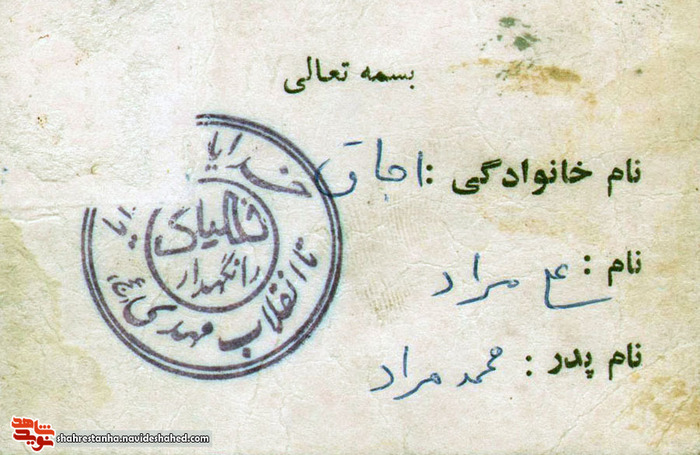 بسمه تعالی
نام خانوادگی : اجاق
نام : علی مراد
نام پدر : محمد مراد
خدایا خدایا
تا انقلاب مهدی (عج)
خمینی
را نگهدار
نوید شاهد
shahrestanha.navideshahed.com